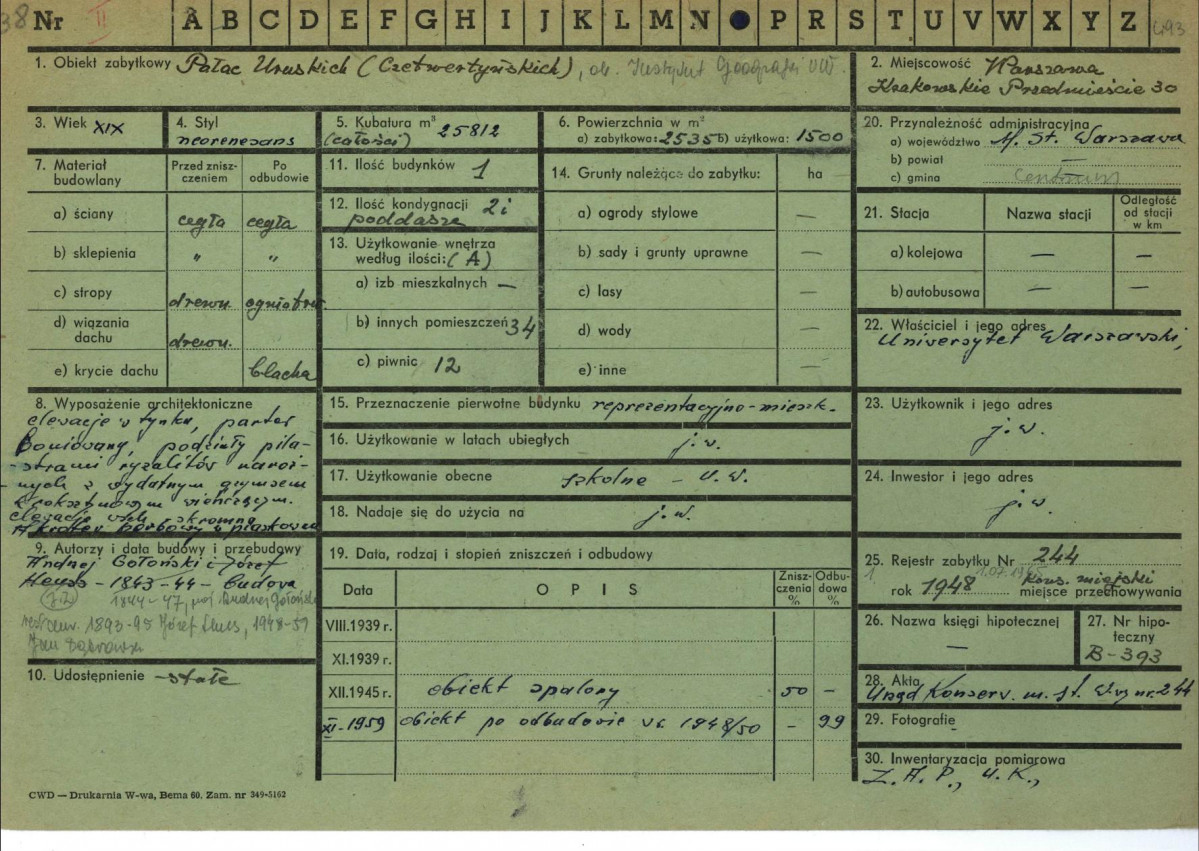 38 Nr II A B C D E F G H I J K L M N P R S T U V W X Y Z 493
1. Obiekt zabytkowy Pałac Uruskich (Czetwertyńskich), ob. Instytut Geografii UW.
2. Miejscowość Warszawa
Krakowskie Przedmieście 30
3. Wiek XIX
4. Styl
neorenesans
5. Kubatura m³ 25812
(całości)
6. Powierzchnia w m²
a) zabytkowa: 2535 b) użytkowa: 1500
7. Materiał budowlany
Przed zniszczeniem
Po odbudowie
a) ściany cegła cegła
b) sklepienia " "
c) stropy drewn. ogniotrw.
d) wiązania dachu drewn.
e) krycie dachu blacha
8. Wyposażenie architektoniczne
elewacje w tynku, parter
boniowany, podziały pila-
-strami ryzalitów naroż-
-nych z wydatnym gzymsem
wieńczącym.
elewacje skromne
kartusz herbowy w piaskowcu
9. Autorzy i data budowy i przebudowy
Andrzej Gołoński i Józef
Heuss - 1843-44 - budowa
1844-47, Andrzej Gołoński
1893-95 Józef Huss, 1948-51
Jan Dąbrowski
10. Udostępnienie - stałe
11. Ilość budynków 1
12. Ilość kondygnacji 2 i
poddasze
13. Użytkowanie wnętrza
według ilości: (A)
a) izb mieszkalnych —
b) innych pomieszczeń 34
c) piwnic 12
14. Grunty należące do zabytku: ha
a) ogrody stylowe —
b) sady i grunty uprawne —
c) lasy —
d) wody —
e) inne —
15. Przeznaczenie pierwotne budynku reprezentacyjno-mieszk.
16. Użytkowanie w latach ubiegłych j.w.
17. Użytkowanie obecne szkolne - U.W.
18. Nadaje się do użycia na j.w.
19. Data, rodzaj i stopień zniszczeń i odbudowy
Data OPIS Zniszczenia % Odbudowa %
VIII.1939 r.
XI.1939 r.
XII.1945 r. obiekt spalony 50 —
XI-1959 obiekt po odbudowie 1948/50 — 99
20. Przynależność administracyjna
a) województwo M. St. Warszawa
b) powiat —
c) gmina Centrum
21. Stacja Nazwa stacji Odległość od stacji w km
a) kolejowa — —
b) autobusowa — —
22. Właściciel i jego adres
Uniwersytet Warszawski,
23. Użytkownik i jego adres
j.w.
24. Inwestor i jego adres
j.w
25. Rejestr zabytku Nr 244
1. 1.07.1965 kons. miejski
rok 1948 miejsce przechowywania
26. Nazwa księgi hipotecznej
—
27. Nr hipoteczny
B-393
28. Akta
Urząd Konserw. m. st. W-wy nr. 244
29. Fotografie
30. Inwentaryzacja pomiarowa
Z.A.P., U.K.,
CWD — Drukarnia W-wa, Bema 60. Zam. nr 349-5162